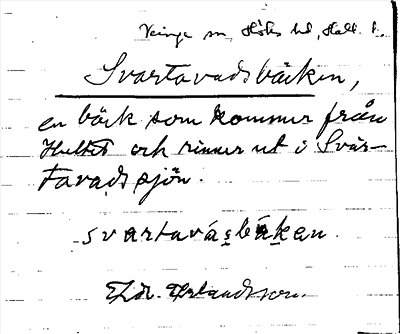 Veinge sn, Höks hd, Hall. l.
Svartavadsbäcken,
en bäck som kommer från
Hultet och rinner ut i Svar-
tavadssjön.
svartavásbäken.
Erlandsson.